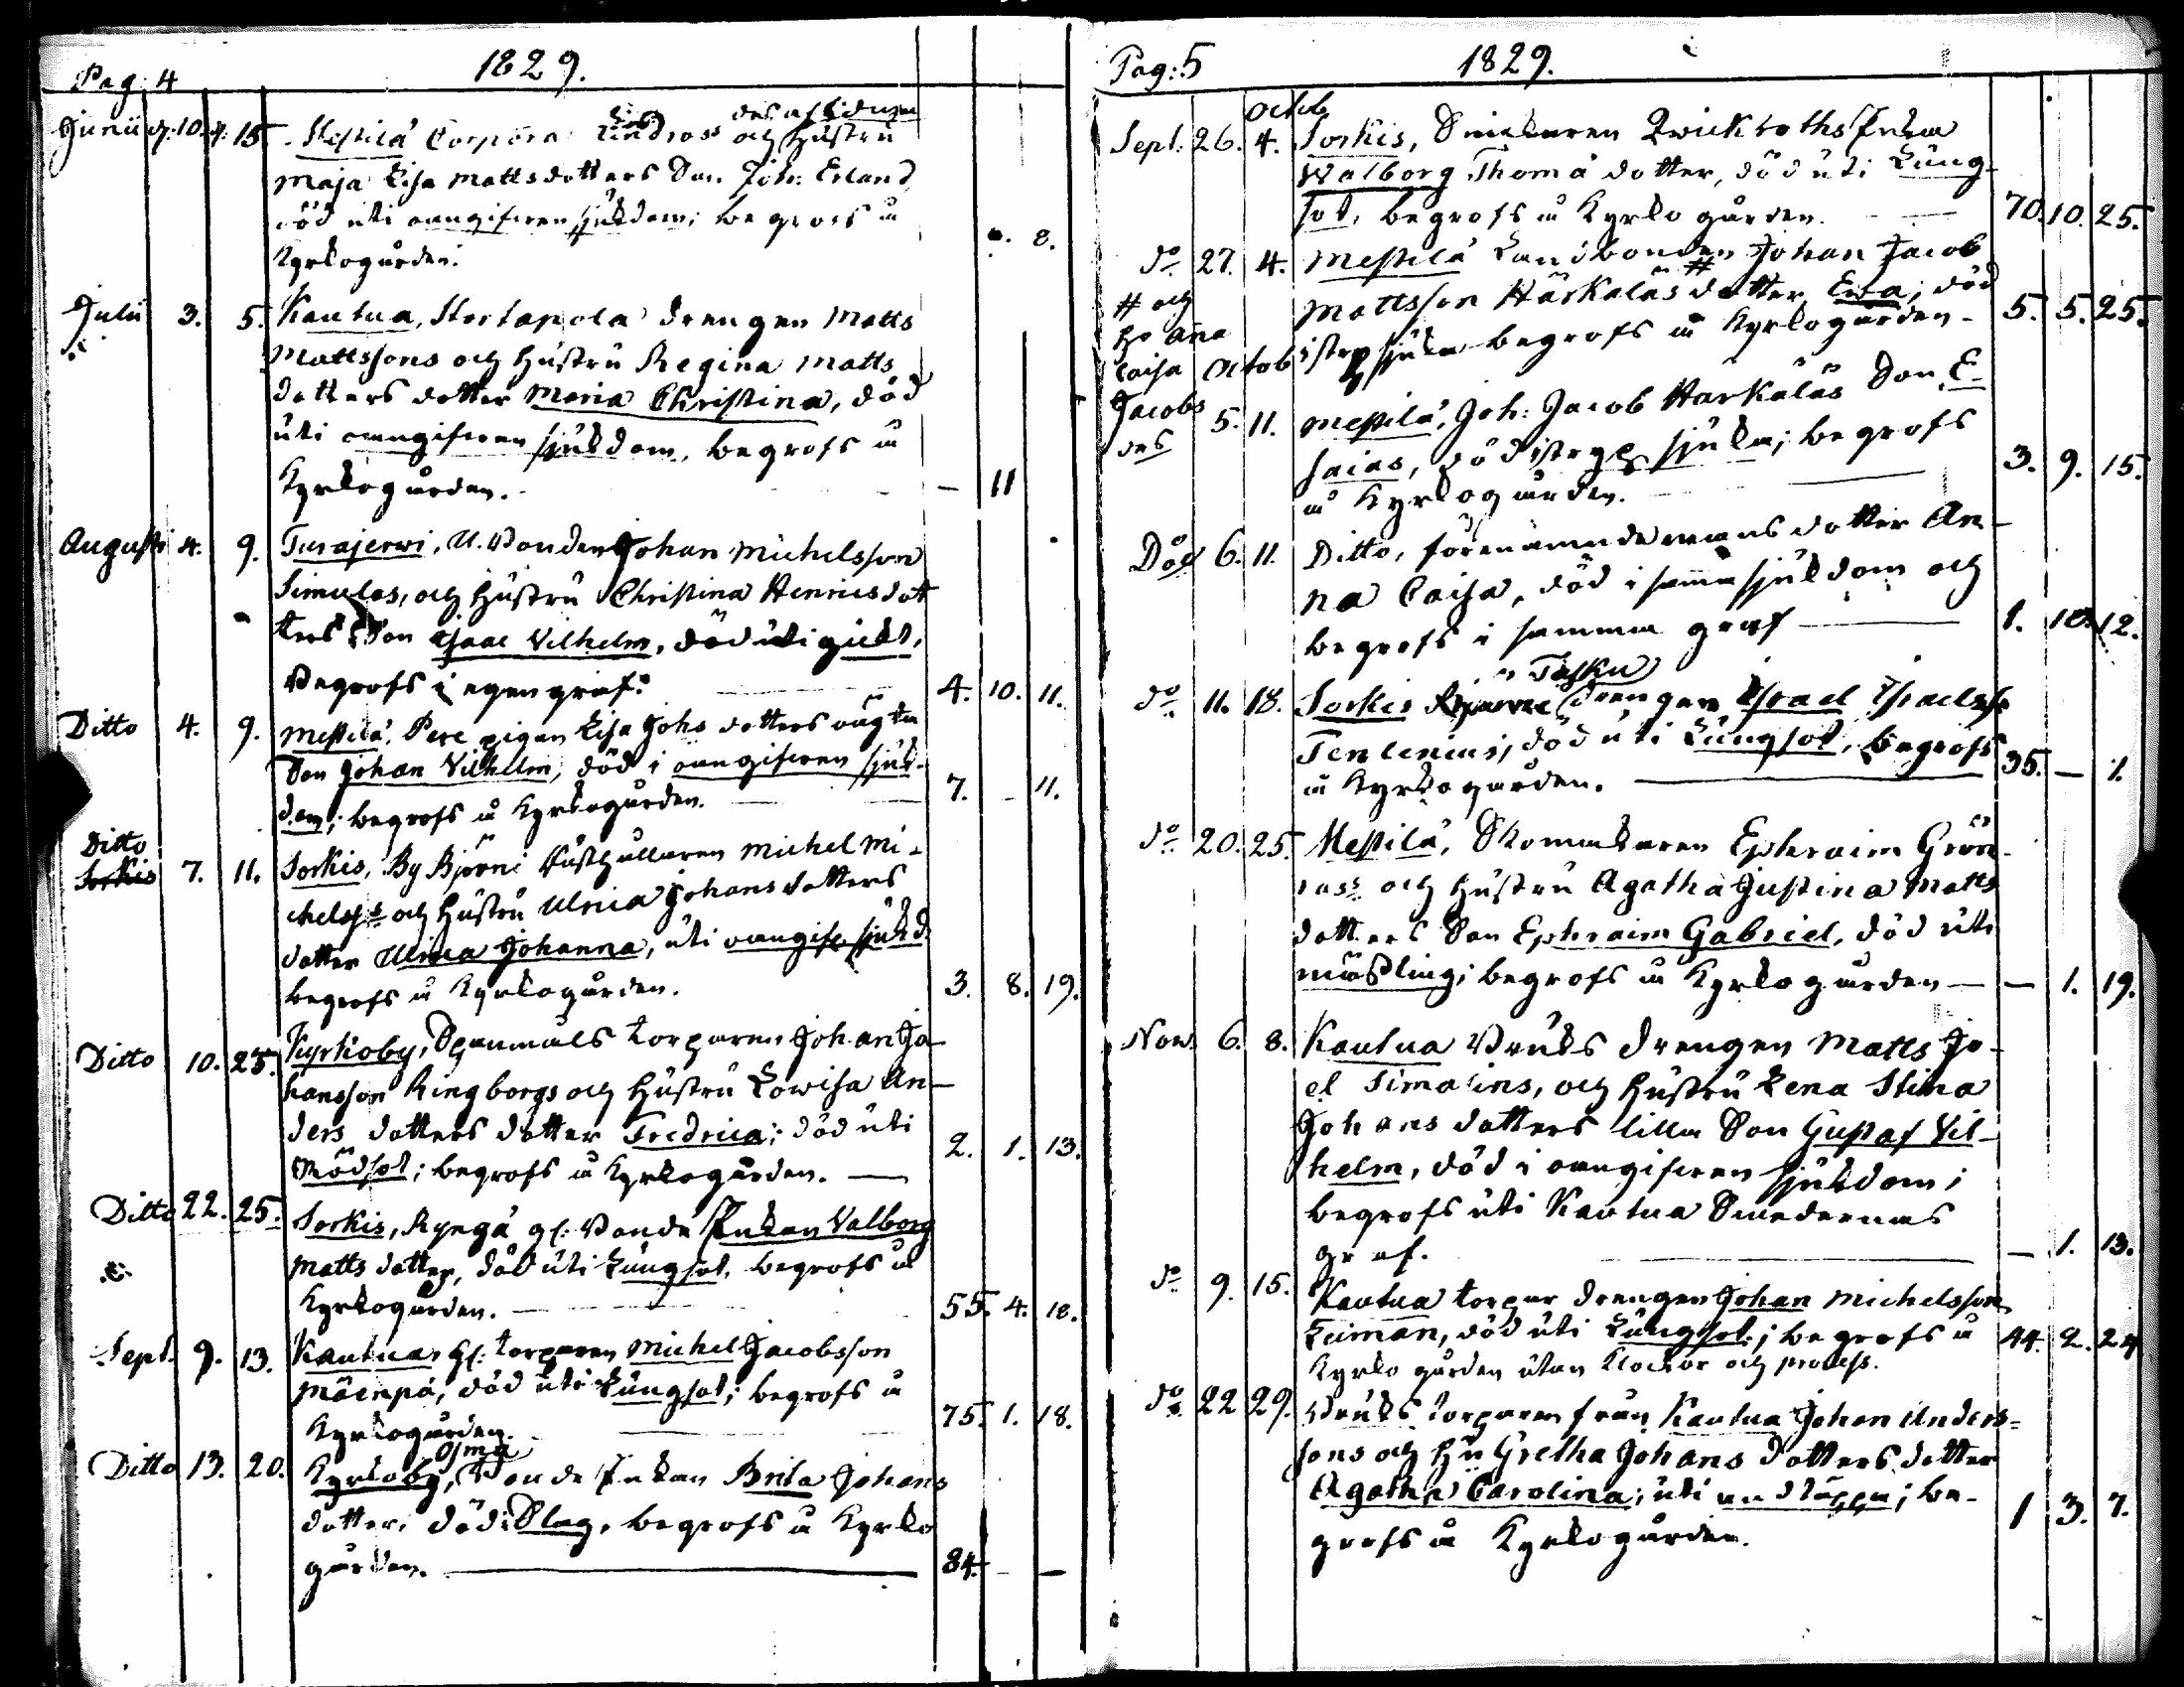 Pag: 4
1829.
Junii d. 10. d. 15 Mestilä Torpara Lindross och Hustru
Maja Lisa Mattsdotters Son Joh: Erland
död uti oangifwen sjukdom; begrofs å
Kyrkogården. 8.
Julii 3. 5. Kautua, Stortapola drengen Matts
Mattssons och Hustru Regina Matts
dotters dotter Maria Christina, död
uti oangifwen sjukdom, begrofs å
Kyrkogården. — 11
Augusti 4. 9. Turajerwi, U. Bonden Johan Michelsson
Simulas, och Hustru Christina Henricsdot
ters Son Isaac Vilhelm, död uti gikt,
Begrofs i egen graf. 4. 10. 11.
Ditto 4. 9. Mestilä, Pere pigan Lisa Johs dotters oägta
Son Johan Vilhelm, död i oangifwen sjuk-
dom; begrofs å Kyrkogården. 7. – 11.
Ditto
Sorkis 7. 11. Sorkis, By Björni Rusthållaren Michel Mi-
chelss. och Hustru Ulrica Johansdotters
dotter Ulrica Johanna, uti oangifw. sjukd.
begrofs å Kyrkogården. 3. 8. 19.
Ditto 10. 25. Kyrkoby, Spanmåls torparen Johan Jo-
hansson Ringborgs och Hustru Lowisa An-
ders dotters dotter Fredrica; död uti
Rödsot; begrofs å Kyrkogården. — 2. 1. 13.
Ditto 22. 25. Sorkis, Ryngä gl: Bonde Enkan Valborg
Matts dotter, död uti Lungsot, begrofs å
Kyrkogården. — 55. 4. 18.
Sept. 9. 13. Kautua, gl: torparen Michel Jacobsson
Mäenpä, död uti Lungsot; begrofs å
Kyrkogården. 75. 1. 18.
Osma
Ditto 13. 20. Kyrkoby, Bonde Enkan Brita Johans
dotter, död i Slag, begrofs å Kyrko
gården. — 84. – –
Pag: 5
1829.
Octob
Sept. 26. 4. Sorkis, Snickaren Qvickroths Enka
Walborg Thomä dotter, död uti Lung-
sot, begrofs å Kyrko gården. 70. 10. 25.
do 27. 4. Mestilä Landbonden Johan Jacob
# och Mattsson Härkäläs # dotter, Eva, död
ho Anna
Caisa Octob i strypsjuka begrofs å Kyrkogården – 5. 5. 25.
Jacobs 5. 11. Mestilä, Joh: Jacob Härkäläs Son E-
drs saias, död i strypsjuka; begrofs
å Kyrkogården. 3. 9. 15.
Do 6. 11. Ditto, förenämnde mans dotter An-
na Caisa, död i samma sjukdom och
begrofs i samma graf — 1. 10. 12.
Tasku
do 11. 18. Sorkis drengen Israel Israelss.
Tenlenius, död uti Lungsot, begrofs
å Kyrkogården. — 35. – 1.
do 20. 25. Mestilä, Skomakaren Ephraim Grön-
roos och Hustru Agatha Justina Matts
dotters Son Ephraim Gabriel, död uti
mässling; begrofs å Kyrkogården — – 1. 19.
Nov. 6. 8. Kautua Bruks drengen Matts Jo-
el Simolins, och Hustru Lena Stina
Johans dotters lilla Son Gustaf Vil-
helm, död i oangifwen sjukdom;
begrofs uti Kautua Smedernas
graf. — – 1. 13.
do 9. 15. Kautua torpar drengen Johan Michelsson
Leiman, död uti Lungsot; begrofs å
Kyrko gården utan Klockor och process. 44. 2. 24.
do 22 29. Bruks torparen från Kautua Johan Anders=
sons och Hu Gretha Johans dotters dotter
Agatha Carolina; uti andtäppa; be-
grofs å Kyrkogården. 1 3. 7.